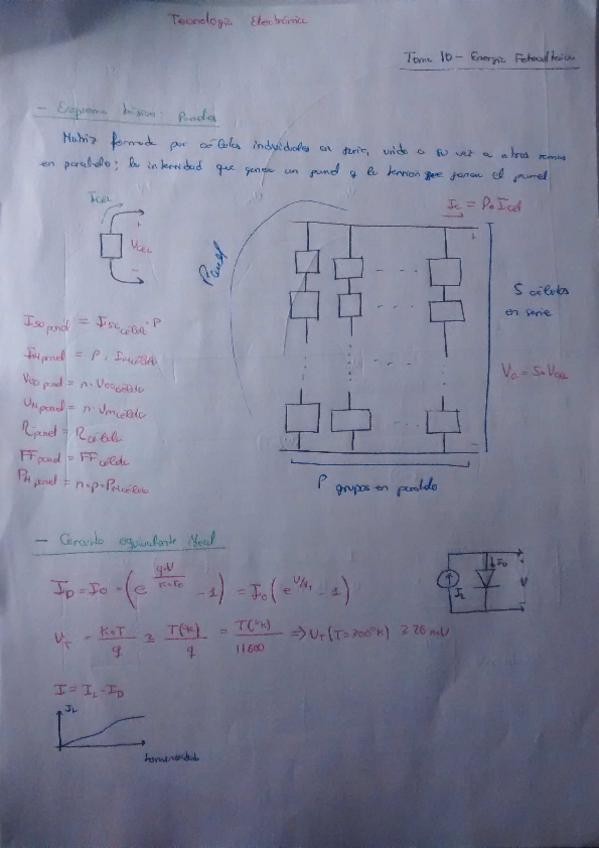 Tecnología Electrónica
Tema 10 - Energía Fotovoltaica
- Esquema básico: Panel
Matriz formada por células individuales en serie, unido a su vez a otras ramas
en paralelo; la intensidad que genera un panel y la tensión que genera el panel
Icel
+
Vcel
-
Panel
Ic = P·Icel
+
S células
en serie
Vc = S·Vcel
-
P grupos en paralelo
Isc panel = Isc célula · P
IM panel = P · IM célula
Vco panel = n · Vco célula
VM panel = n · VM célula
R panel = R célula
FF panel = FF célula
PM panel = n·p·PM célula
- Circuito equivalente ideal
ID = Io · (e^(q·V/K·T) - 1) = Io (e^(V/VT) - 1)
IL ID + V -
VT = K·T/q ≅ T(ºK)/q = T(ºK)/11600 => VT (T=300ºK) ≅ 26 mV
I = IL - ID
IL
Luminosidad